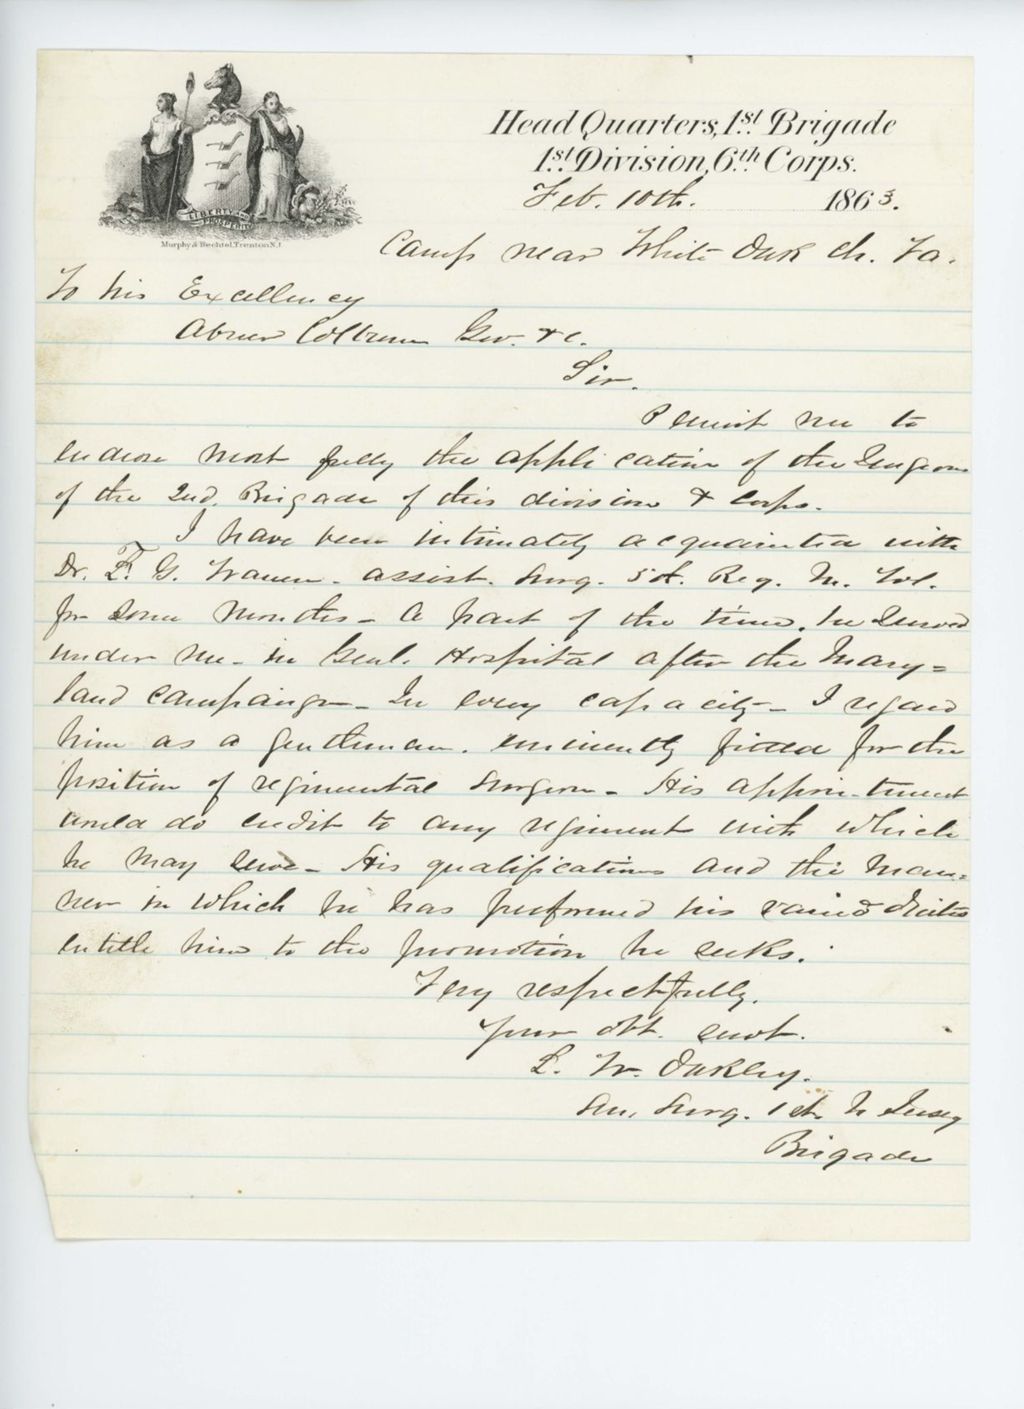 Head Quarters, 1st Brigade
1st Division, 6th Corps.
LIBERTY AND
PROSPERITY
Murphy & Bechtel, Trenton N.J.
Feb. 10th. 1863.
Camp near White Oak Ch. Va.
To his Excellency
Abner Coburn Gov. &c.
Sir.
Permit me to
endorse most fully the application of the Surgeons
of the 2nd. Brigade of this division & corps.
I have been intimately acquainted with
Dr. F. G. Warren. assist. Surg. 5th. Reg. M. Vol.
for some months - A part of the time, he served
under me - in Genl. Hospital after the Mary=
land campaign - In every capacity - I regard
him as a gentleman. eminently fitted for the
position of regimental Surgeon - His appointment
would do credit to any regiment with which
he may serve - His qualifications and the man=
ner in which he has performed his varied duties
entitle him to the promotion he seeks.
Very respectfully.
Your obt. servt.
L. W. Oakley.
Surg. 1st N Jersey
Brigade